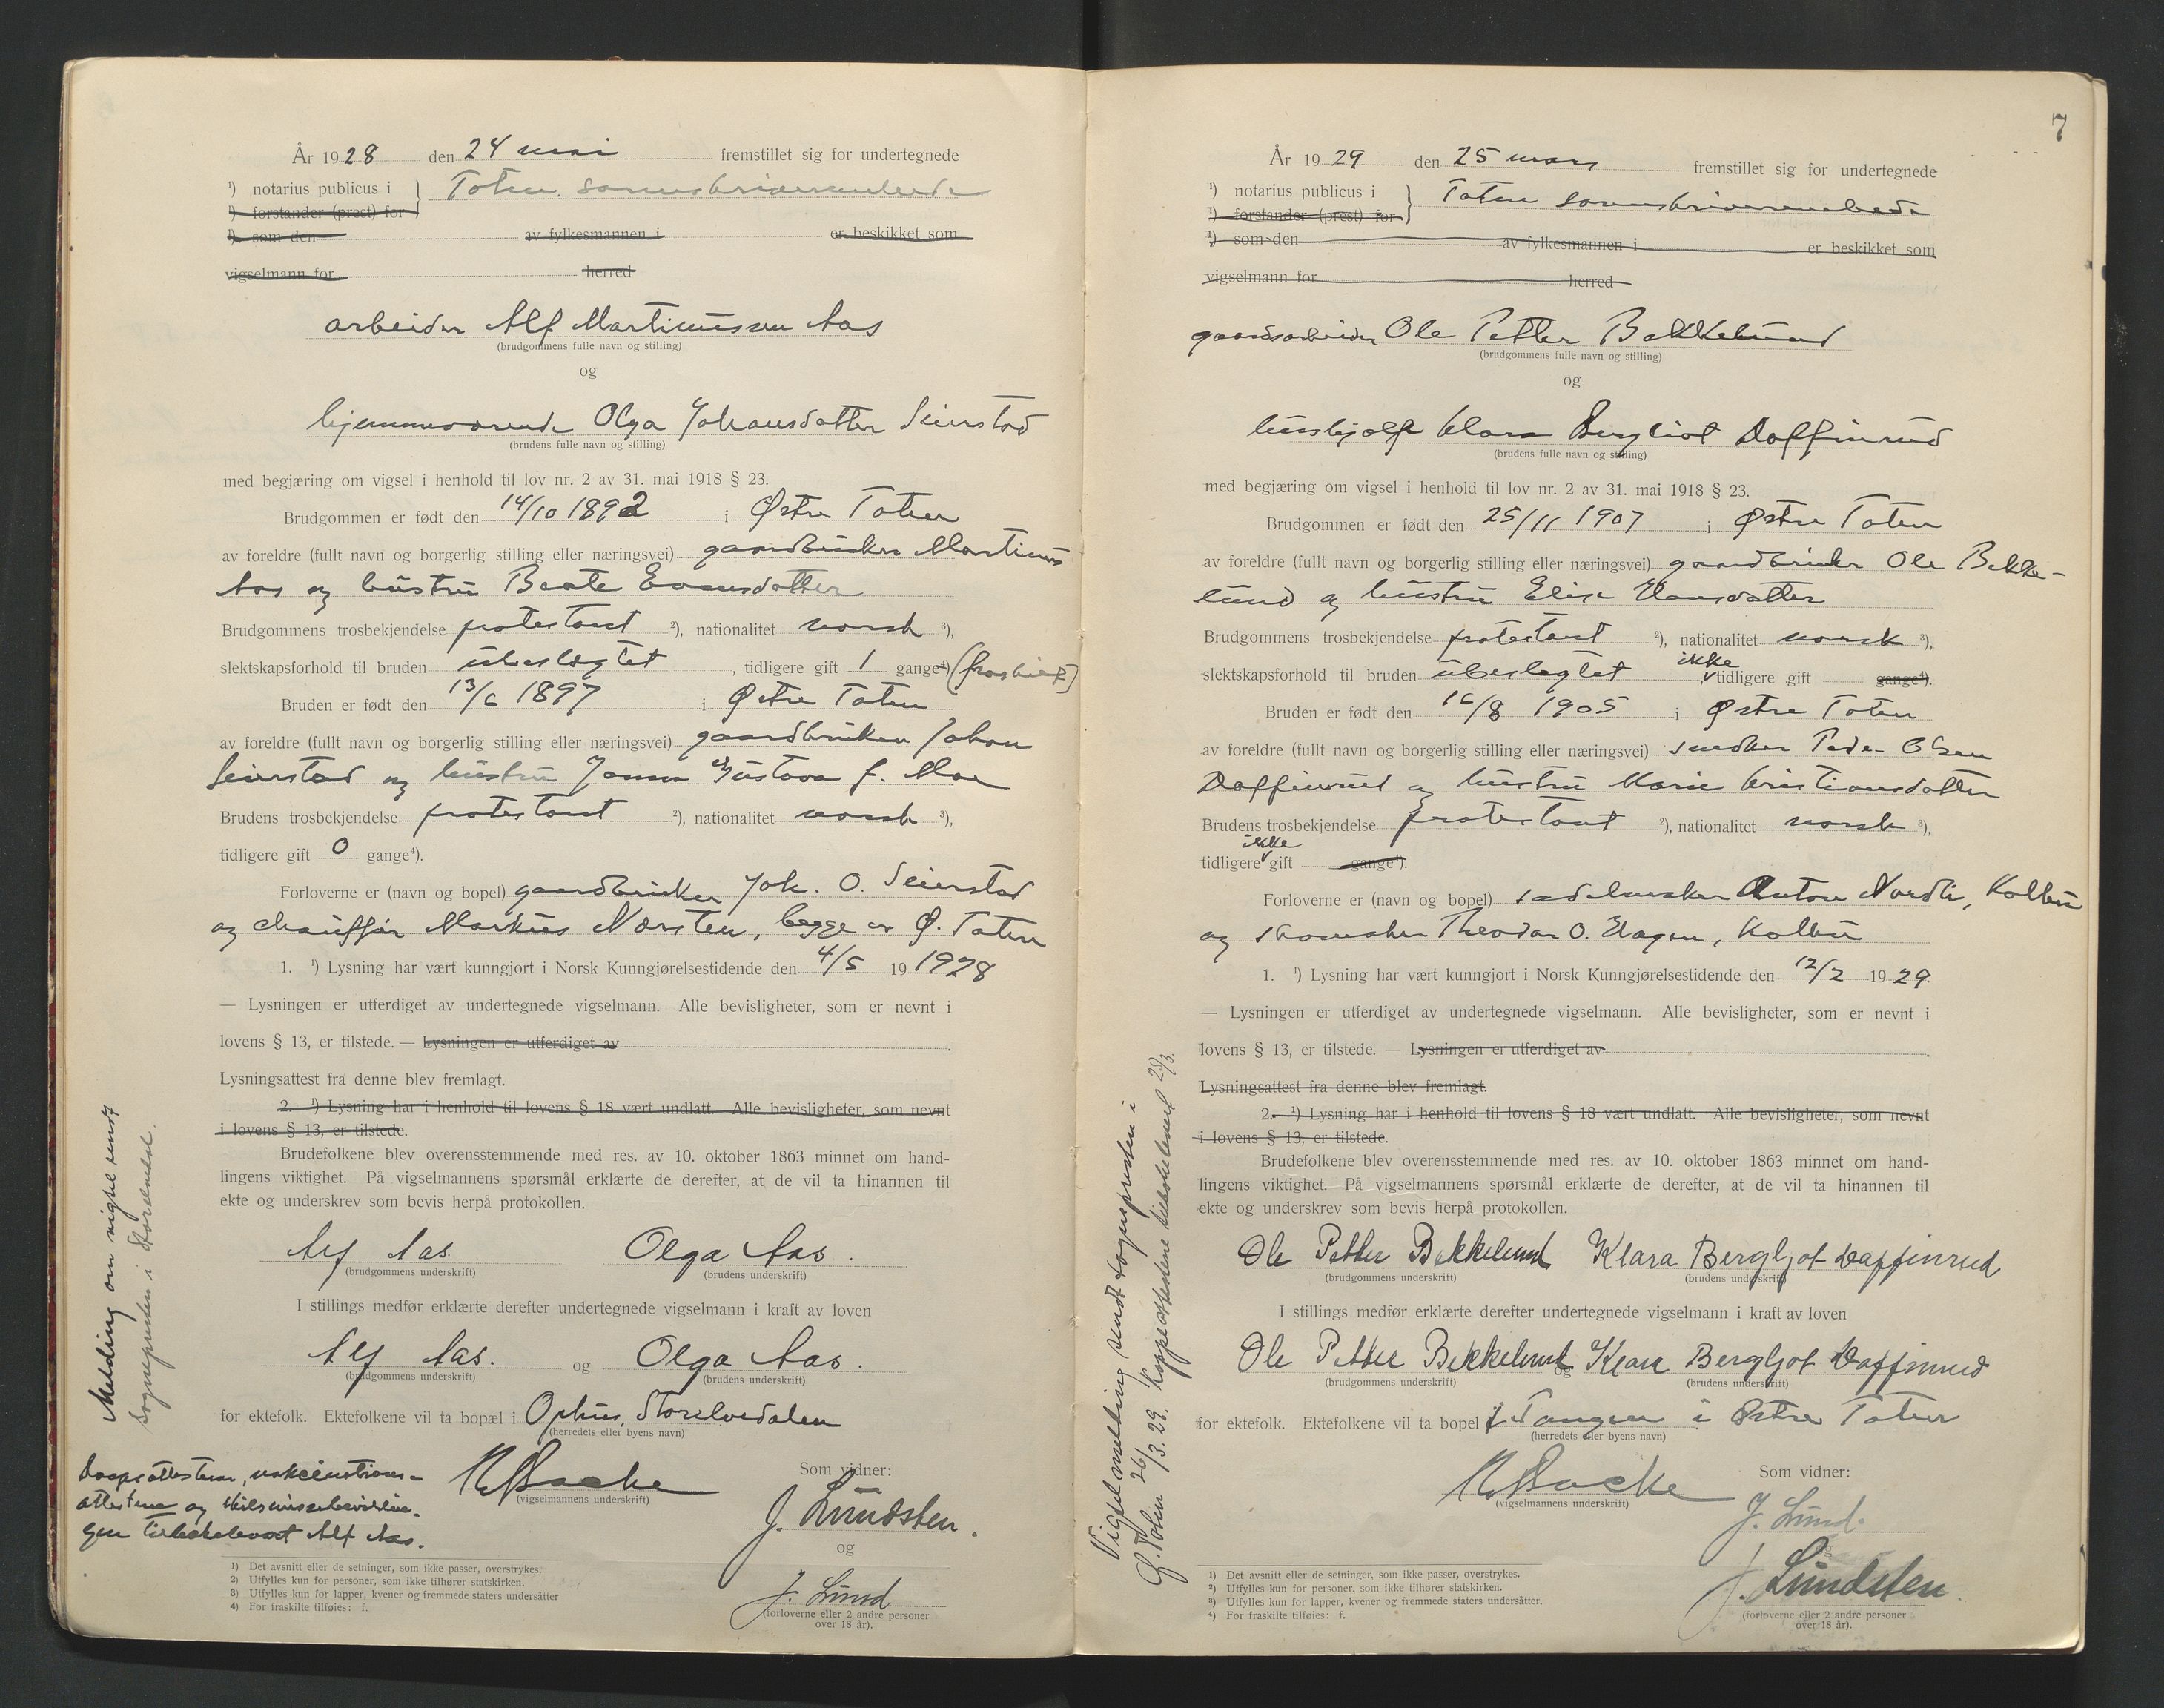 År 1928 den 24 mai fremstillet sig for undertegnede
¹) notarius publicus i } Toten sorenskriverembede
¹) forstander (prest) for
¹) som den av fylkesmannen i er beskikket som
vigselmann for herred
arbeider Alf Martinussen Aas
(brudgommens fulle navn og stilling)
og
hjemmeværende Olga Johansdatter Seierstad
(brudens fulle navn og stilling)
med begjæring om vigsel i henhold til lov nr. 2 av 31. mai 1918 § 23.
Brudgommen er født den 14/10 1892 i Østre Toten
av foreldre (fullt navn og borgerlig stilling eller næringsvei) gaardbruker Martinus
Aas og hustru Beate Evensdatter
Brudgommens trosbekjendelse protestant ²), nationalitet norsk ³),
slektskapsforhold til bruden ubeslægtet, tidligere gift 1 gange⁴) (fraskilt)
Bruden er født den 13/6 1897 i Østre Toten
av foreldre (fullt navn og borgerlig stilling eller næringsvei) gaardbruker Johan
Seierstad og hustru Gustava f. Moe
Brudens trosbekjendelse protestant ²), nationalitet norsk ³),
tidligere gift 0 gange⁴).
Forloverne er (navn og bopel) gaardbruker Joh. O. Seierstad
og chauffør Markus Nærsten, begge av Ø. Toten
1. ¹) Lysning har vært kunngjort i Norsk Kunngjørelsestidende den 4/5 19 1928
— Lysningen er utferdiget av undertegnede vigselmann. Alle bevisligheter, som er nevnt i
lovens § 13, er tilstede. — Lysningen er utferdiget av .
Lysningsattest fra denne blev fremlagt.
2. ¹) Lysning har i henhold til lovens § 18 vært undlatt. Alle bevisligheter, som nevnt
i lovens § 13, er tilstede.
Brudefolkene blev overensstemmende med res. av 10. oktober 1863 minnet om hand-
lingens viktighet. På vigselmannens spørsmål erklærte de derefter, at de vil ta hinannen til
ekte og underskrev som bevis herpå protokollen.
Alf Aas. Olga Aas.
(brudgommens underskrift) (brudens underskrift)
I stillings medfør erklærte derefter undertegnede vigselmann i kraft av loven
Alf Aas. og Olga Aas.
(brudgommens underskrift) (brudens underskrift)
for ektefolk. Ektefolkene vil ta bopæl i Ophus, Storelvedalen
(herredets eller byens navn)
Melding om vigsel sendt
sognepresten i Storelvdal.
Daapsattestene, vakcinations-
attestene og skilsmissebevillin-
gen tilbakelevert Alf Aas.
N Backe
(vigselmannens underskrift)
Som vidner:
J. Lundsten.
og
J. Lund
(forloverne eller 2 andre personer
over 18 år).
¹) Det avsnitt eller de setninger, som ikke passer, overstrykes.
²) Utfylles kun for personer, som ikke tilhører statskirken.
³) Utfylles kun for lapper, kvener og fremmede staters undersåtter
⁴) For fraskilte tilføies: f.
7
År 1929 den 25 mars fremstillet sig for undertegnede
¹) notarius publicus i } Toten sorenskriverembede
¹) forstander (prest) for
¹) som den av fylkesmannen i er beskikket som
vigselmann for herred
gaardsarbeider Ole Petter Bekkelund
(brudgommens fulle navn og stilling)
og
hushjælp Klara Bergliot Daffinrud
(brudens fulle navn og stilling)
med begjæring om vigsel i henhold til lov nr. 2 av 31. mai 1918 § 23.
Brudgommen er født den 25/11 1907 i Østre Toten
av foreldre (fullt navn og borgerlig stilling eller næringsvei) gaardbruker Ole Bekke-
lund og hustru Elise Hansdatter
Brudgommens trosbekjendelse protestant ²), nationalitet norsk ³),
slektskapsforhold til bruden ubeslegtet, ikke tidligere gift gange⁴).
Bruden er født den 16/8 1905 i Østre Toten
av foreldre (fullt navn og borgerlig stilling eller næringsvei) snedker Peder Olsen
Daffinrud og hustru Marie Kristiansdatter
Brudens trosbekjendelse protestant ²), nationalitet norsk ³),
tidligere ikke gift gange⁴).
Forloverne er (navn og bopel) sadelmaker Anton Nordli, Kolbu
og skomaker Theodor O. Hagen, Kolbu
1. ¹) Lysning har vært kunngjort i Norsk Kunngjørelsestidende den 12/2 1929.
— Lysningen er utferdiget av undertegnede vigselmann. Alle bevisligheter, som er nevnt i
lovens § 13, er tilstede. — Lysningen er utferdiget av .
Lysningsattest fra denne blev fremlagt.
2. ¹) Lysning har i henhold til lovens § 18 vært undlatt. Alle bevisligheter, som nevnt
i lovens § 13, er tilstede.
Brudefolkene blev overensstemmende med res. av 10. oktober 1863 minnet om hand-
lingens viktighet. På vigselmannens spørsmål erklærte de derefter, at de vil ta hinannen til
ekte og underskrev som bevis herpå protokollen.
Ole Petter Bekkelund Klara Bergljot Daffinrud
(brudgommens underskrift) (brudens underskrift)
I stillings medfør erklærte derefter undertegnede vigselmann i kraft av loven
Ole Petter Bekkelund og Klara Bergljot Daffinrud
(brudgommens underskrift) (brudens underskrift)
for ektefolk. Ektefolkene vil ta bopel i Tangen i Østre Toten
(herredets eller byens navn)
Vigselmelding sendt sognepresten i
Ø. Toten 26/3.29. Koppeattestene tilbakelevert 25/3.
N Backe
(vigselmannens underskrift)
Som vidner:
J. Lund.
og
J. Lundsten.
(forloverne eller 2 andre personer
over 18 år).
¹) Det avsnitt eller de setninger, som ikke passer, overstrykes.
²) Utfylles kun for personer, som ikke tilhører statskirken.
³) Utfylles kun for lapper, kvener og fremmede staters undersåtter.
⁴) For fraskilte tilføies: f.